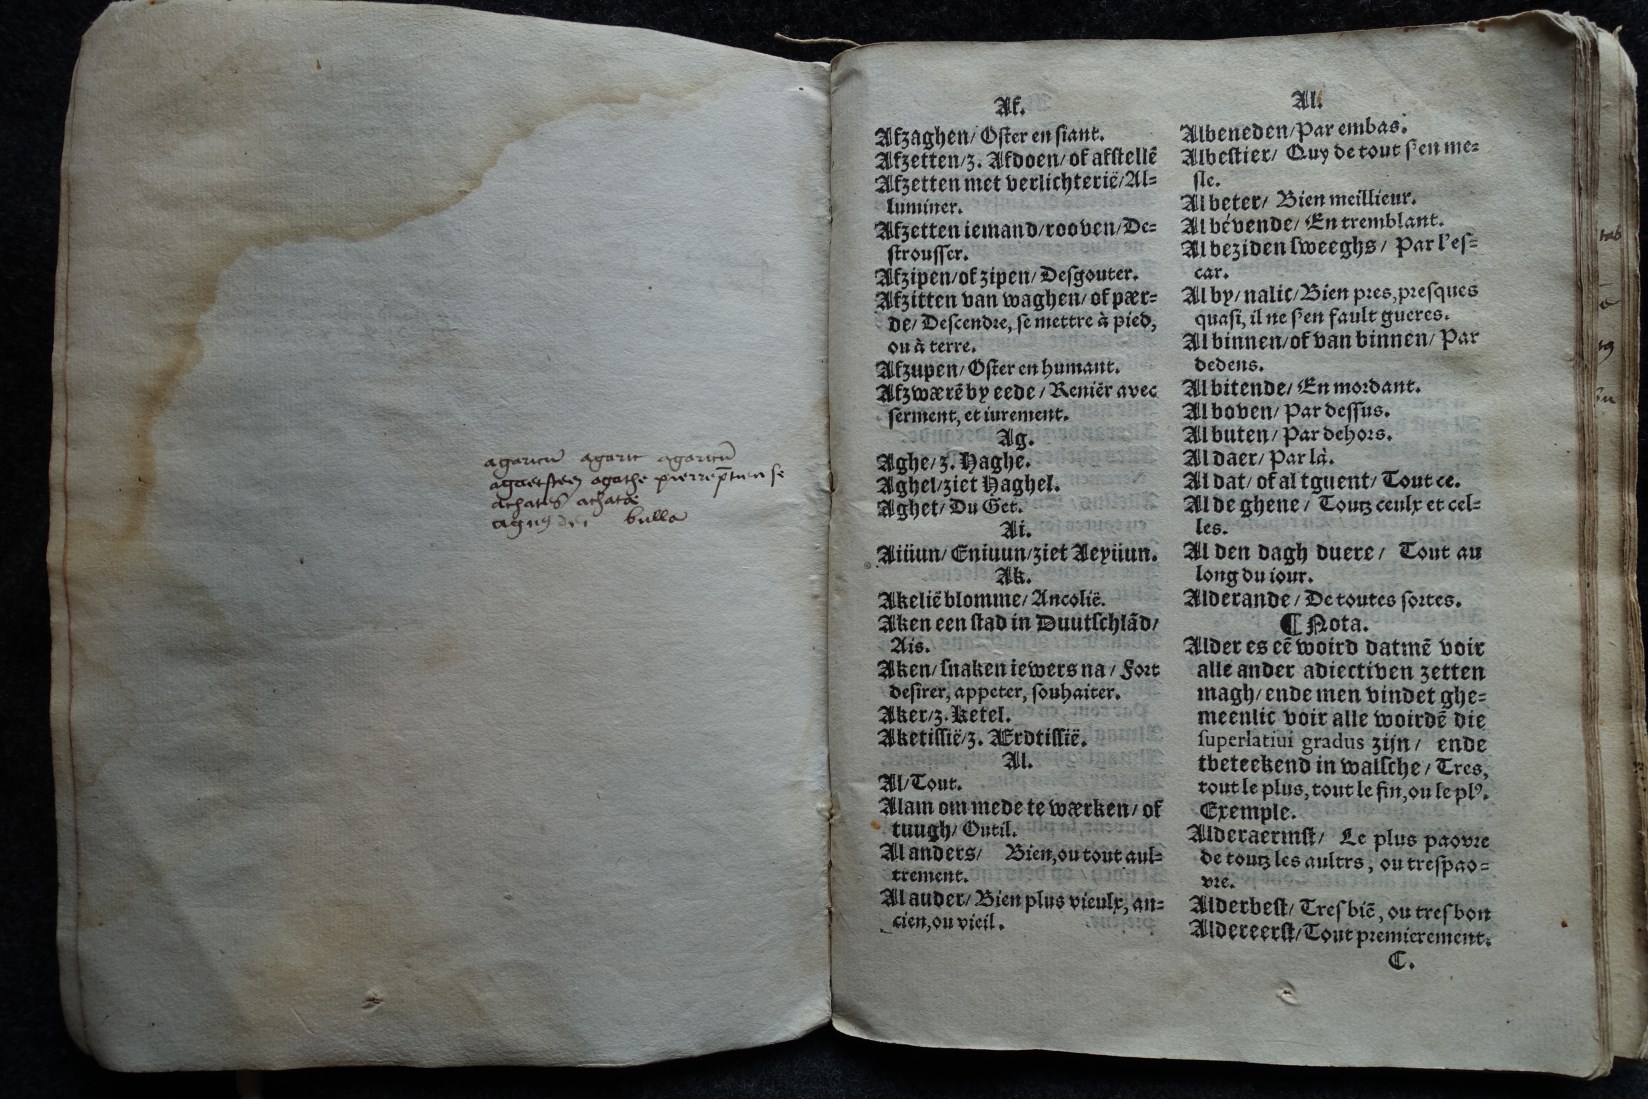 agaricū agaric agaricū
agaetsteen agathe pierre
achates achatæ
agnus dei bulla
Af.
Afzaghen/ Oſter en ſiant.
Afzetten/z. Afdoen/ of afſtellē
Afzetten met verlichterië/Al⸗
luminer.
Afzetten iemand/rooven/De⸗
ſtrouſſer.
Afzipen/of zipen/ Deſgouter.
Afzitten van waghen/ of pær⸗
de/ Deſcendre, se mettre à pied,
ou à terre.
Afzupen/ Oſter en humant.
Afzwærē by eede/ Reniēr avec
ſerment, et iurement.
Ag.
Aghe/z. Haghe.
Aghel/ziet Haghel.
Aghet/ Du Get.
Ai.
Aiüun/ Eniuun/ziet Aeyüun.
Ak.
Akelië blomme/ Ancolië.
Aken een ſtad in Duutſchlād/
Ais.
Aken/ſnaken iewers na/ Fort
deſirer, appeter, ſouhaiter.
Aker/z. Ketel.
Aketiſſië/z. Ærdtiſſië.
Al.
Al/Tout.
Alam om mede te wærken/ of
tuugh/ Outil.
Al anders/ Bien, ou tout aul⸗
trement.
Al auder/ Bien plus vieulx, an⸗
cien, ou vieil.
Al.
Albeneden/Par embas.
Albeſtier/ Quy de tout ſ'en me⸗
ſle.
Al beter/ Bien meillieur.
Al bévende/ En tremblant.
Al beziden ſweeghs/ Par l'eſ⸗
car.
Al by/nalic/Bien pres, preſques
quaſi, il ne ſ'en fault gueres.
Al binnen/of van binnen/ Par
dedens.
Al bitende/ En mordant.
Al boven/ Par deſſus.
Al buten/ Par dehors.
Al daer/ Par là.
Al dat/ of al tguent/ Tout ce.
Al de ghene/ Toutz ceulx et cel⸗
les.
Al den dagh duere/ Tout au
long du iour.
Alderande/ De toutes ſortes.
¶ Nota.
Alder es eē woird datmē voir
alle ander adiectiven zetten
magh/ ende men vindet ghe⸗
meenlic voir alle woirdē die
ſuperlatiui gradus zijn/ ende
tbeteekend in walſche/ Tres,
tout le plus, tout le fin, ou le plꝰ.
Exemple.
Alderaermſt/ Le plus paovre
de toutz les aultrs, ou treſpao⸗
vre.
Alderbeſt/ Treſ biē, ou treſ bon
Aldereerſt/Tout premierement.
C.